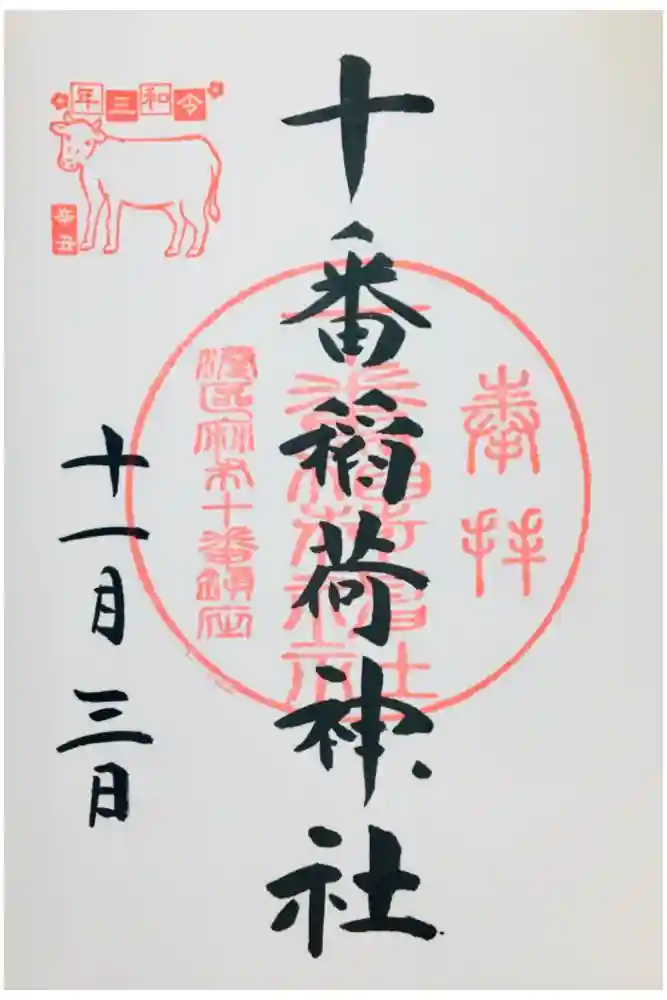 奉拝
十番稲荷神社
十番稲荷神社
港区麻布十番鎮座
令和三年
辛丑
十一月三日